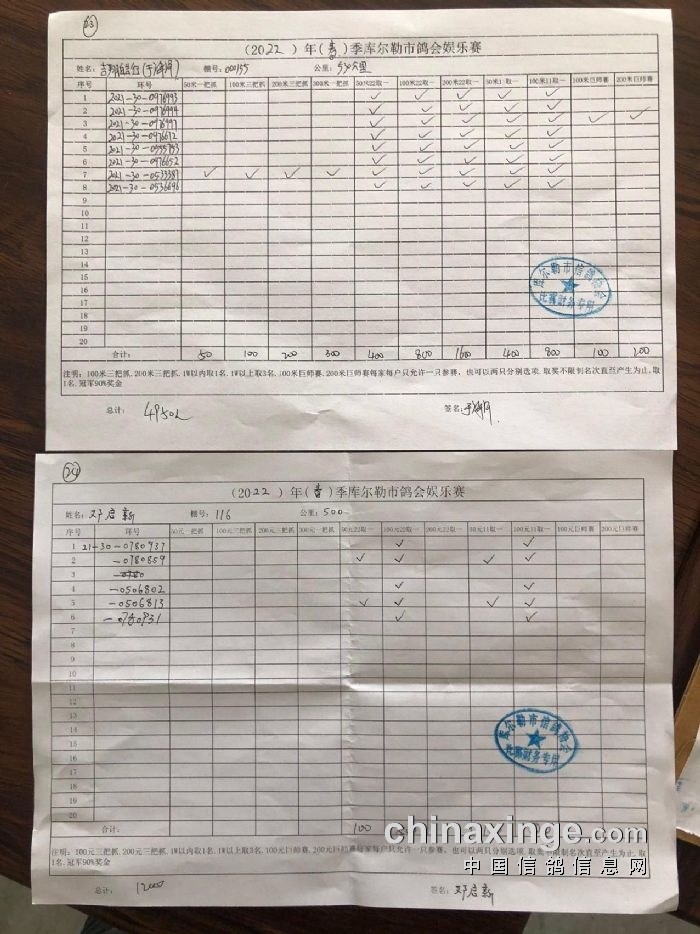 23
(2022)年(春)季库尔勒市鸽会娱乐赛
棚号: 000155 公里: 530公里
序号 环号 50米一把抓 100米三把抓 200米三把抓 300米一把抓 50元22取一 100米22取一 300米22取一 50米11取一 100米11取一 100米巨师赛 200米巨师赛
1 2021-30-0976993 ✓ ✓ ✓ ✓ ✓
2 2021-30-0976994 ✓ ✓ ✓ ✓ ✓
3 2021-30-0976997 ✓ ✓ ✓ ✓ ✓ ✓ ✓
4 2021-30-0976672 ✓ ✓ ✓ ✓ ✓
5 2021-30-0555753 ✓ ✓ ✓ ✓ ✓
6 2021-30-0976652 ✓ ✓ ✓ ✓ ✓
7 2021-30-0533387 ✓ ✓ ✓ ✓ ✓ ✓ ✓ ✓ ✓
8 2021-30-0536696 ✓ ✓ ✓ ✓ ✓
9
10
11
12
13
14
15
16
17
18
19
20
库尔勒市信鸽协会
比赛财务专用
合计: 50 100 200 300 400 800 1600 400 800 100 200
注明: 100米三把抓.200米三把抓.1W以内取1名.1W以上取3名.100米巨师赛.200米巨师赛每家每户只允许一只参赛。也可以两只分别选项.取奖不限制名次直至产生为止.取
1名.冠军90%奖金
总计: 4950 签名:
24
(2022)年(春)季库尔勒市鸽会娱乐赛
姓名: 邓启新 棚号: 116 公里: 500
序号 环号 50元一把抓 100元三把抓 200元三把抓 300元一把抓 50元22取一 100元22取一 200元22取一 50元11取一 100元11取一 100元巨师赛 200元巨师赛
1 21-30-0780937 ✓ ✓
2 -0780859 ✓ ✓ ✓ ✓
3
4 -0506802 ✓ ✓
5 -0506813 ✓ ✓ ✓ ✓
6 -0780931 ✓ ✓
7
8
9
10
11
12
13
14
15
16
17
18
19
20
库尔勒市信鸽协会
比赛财务专用
合计: 100
chinaxinge.com
注明: 100元三把抓.200元三把抓.1W以内取1名.1W以上取3名.100元巨师赛.200元巨师赛每家每户只允许一只参赛。也可以两只分别选项.取奖不限制名次直至产生为止.取
1名.冠军90%奖金
中国信鸽信息网
总计: 签名: 邓启新